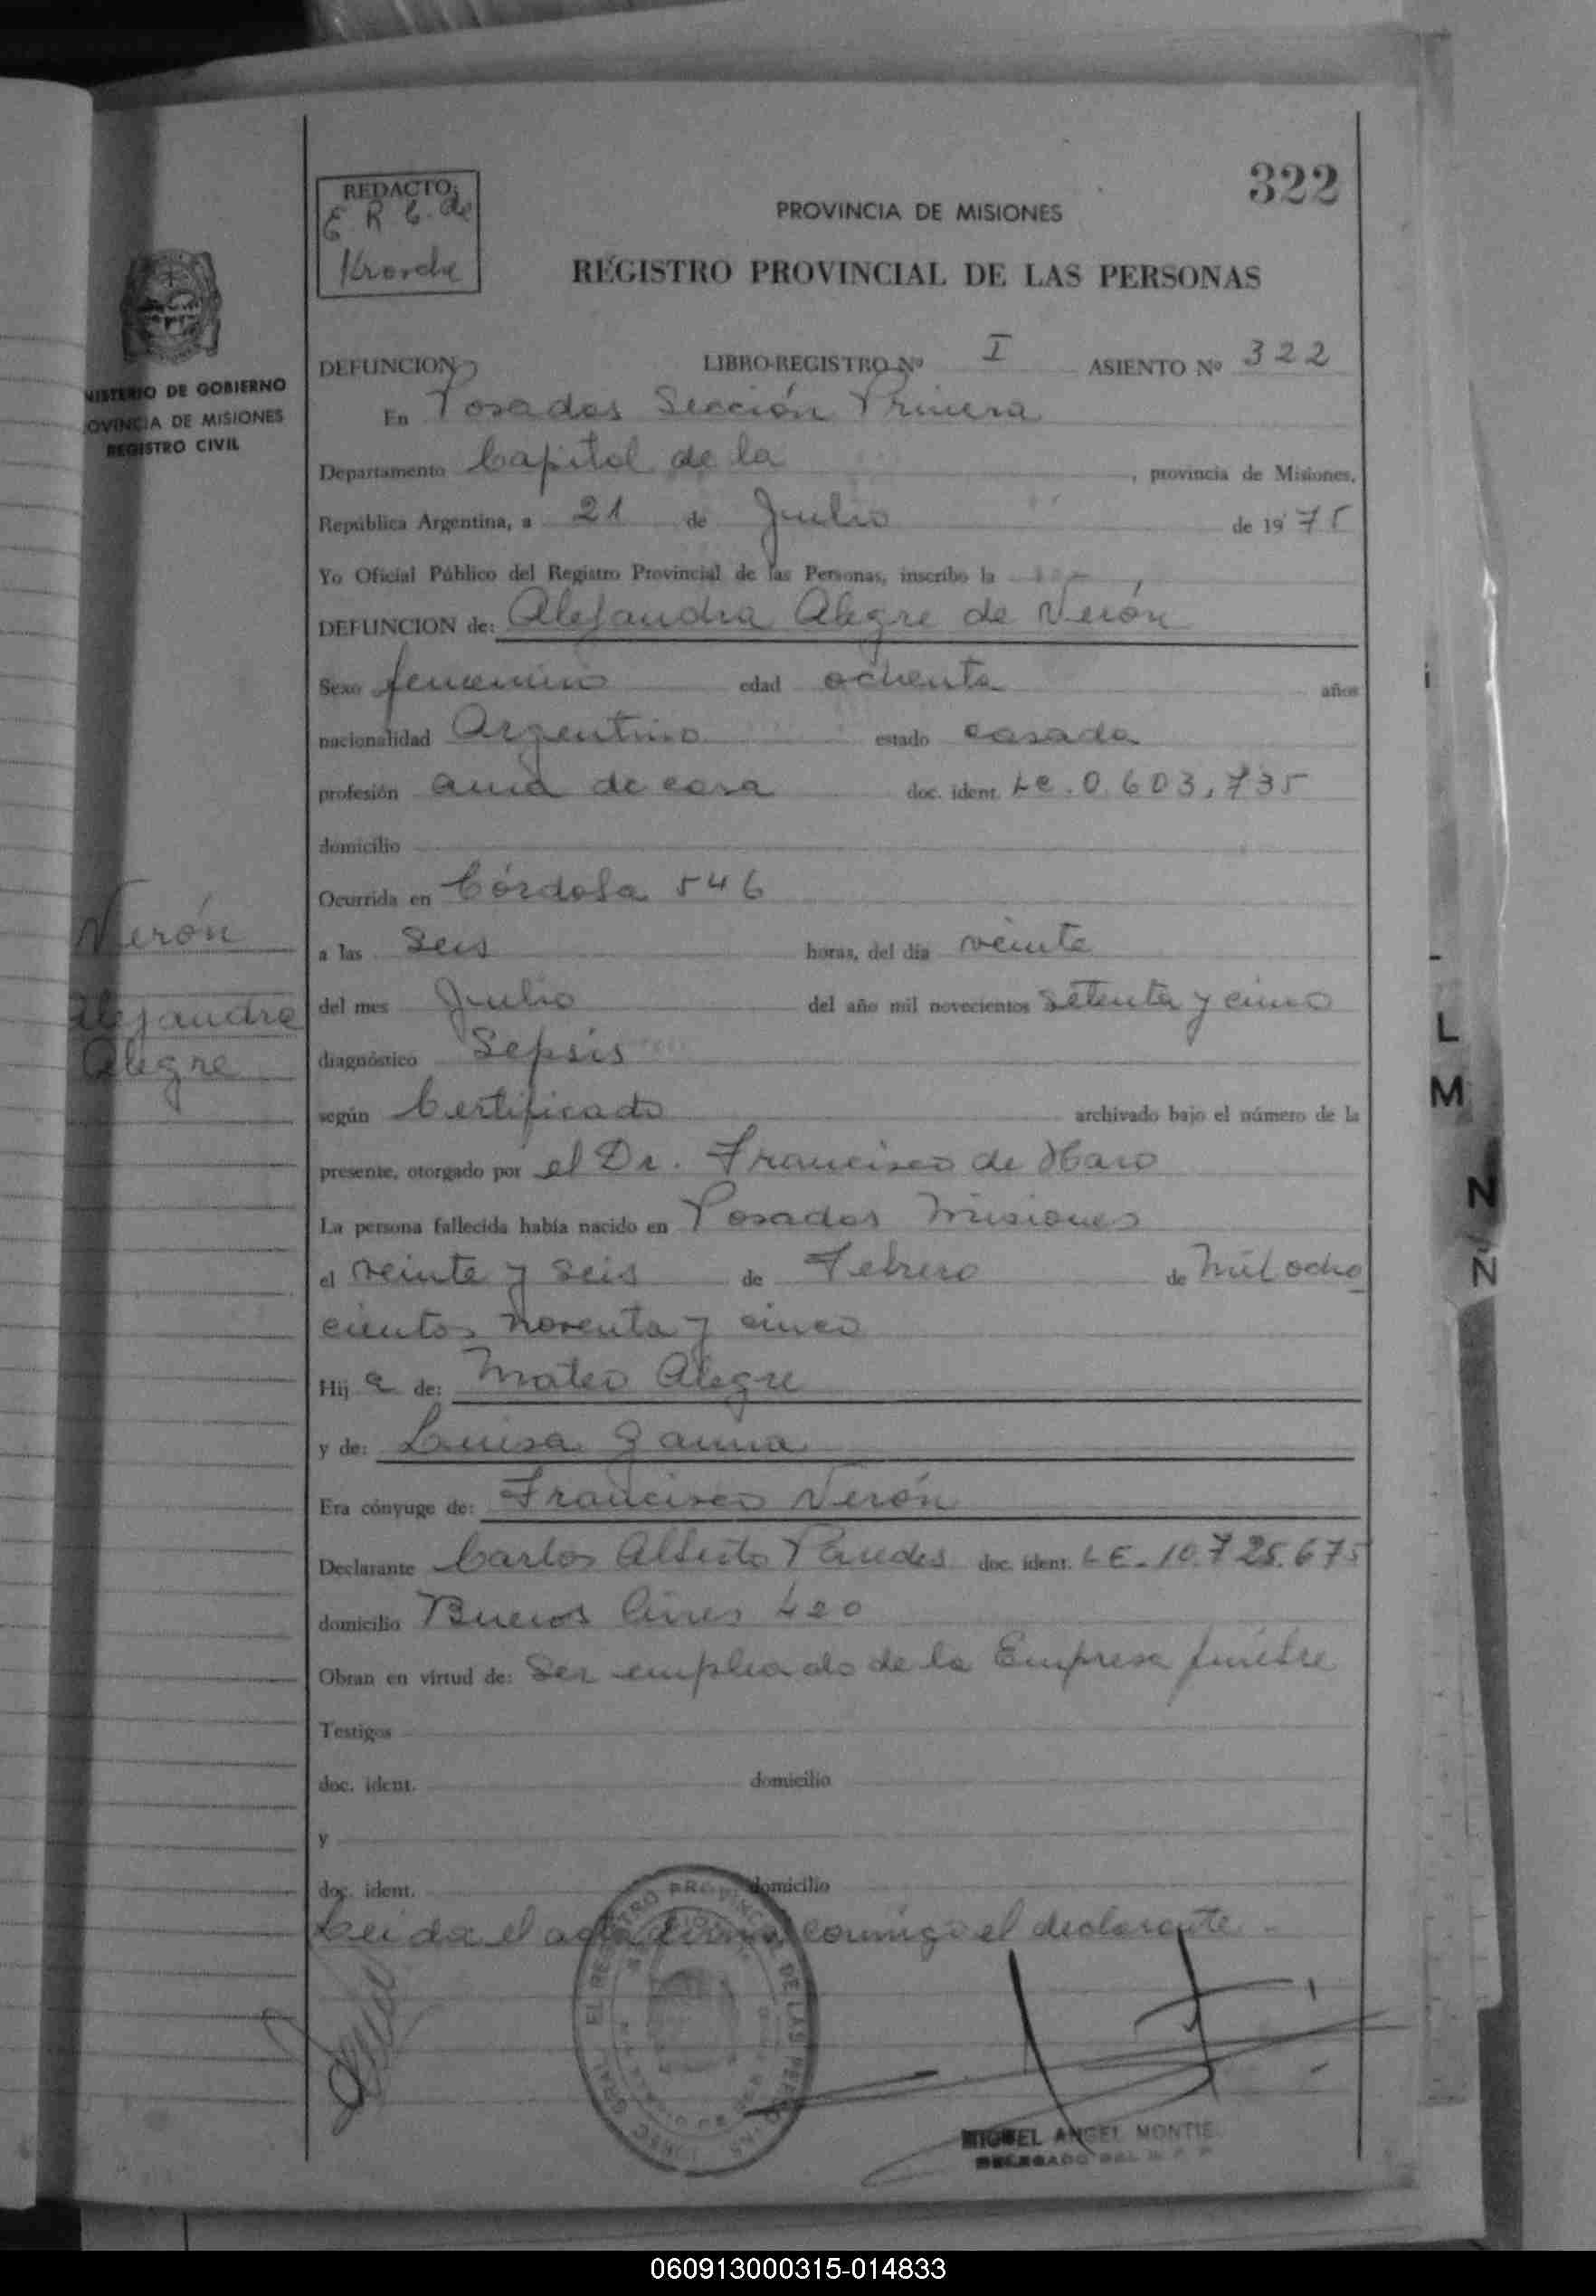 322
REDACTO:
E R C. de
PROVINCIA DE MISIONES
REGISTRO PROVINCIAL DE LAS PERSONAS
DEFUNCION LIBRO-REGISTRO Nº I ASIENTO Nº 322
MINISTERIO DE GOBIERNO
PROVINCIA DE MISIONES
REGISTRO CIVIL
En Posadas Sección Primera
Departamento Capital de la , provincia de Misiones,
República Argentina, a 21 de Julio de 1975
Yo Oficial Público del Registro Provincial de las Personas, inscribo la
DEFUNCION de: Alejandra Alegre de Verón
Sexo femenino edad ochenta años
nacionalidad Argentina estado casada
profesión ama de casa doc. ident. LC. 0.603.735
domicilio
Ocurrida en Córdoba 546
Verón
a las Seis horas, del día veinte
Alejandra
del mes Julio del año mil novecientos setenta y cinco
Alegre
diagnóstico Sepsis
según Certificado archivado bajo el número de la
presente, otorgado por el Dr. Francisco de Haro
La persona fallecida había nacido en Posadas Misiones
el veinte y seis de Febrero de Mil ocho
cientos noventa y cinco
Hij a de: Mateo Alegre
y de: Luisa
Era cónyuge de: Francisco Verón
Declarante Carlos Alberto Paredes doc. ident. LE. 10.725.675
domicilio Buenos Aires 420
Obran en virtud de: Ser empleado de la Empresa fúnebre
Testigos
doc. ident. domicilio
y
doc. ident. domicilio
Leida el acta firma conmigo el declarante
EL REGISTRO PROVINCIAL DE LAS PERSONAS
MIGUEL ANGEL MONTIE
DELEGADO DEL R. P. P.
L
M
N
Ñ
060913000315-014833